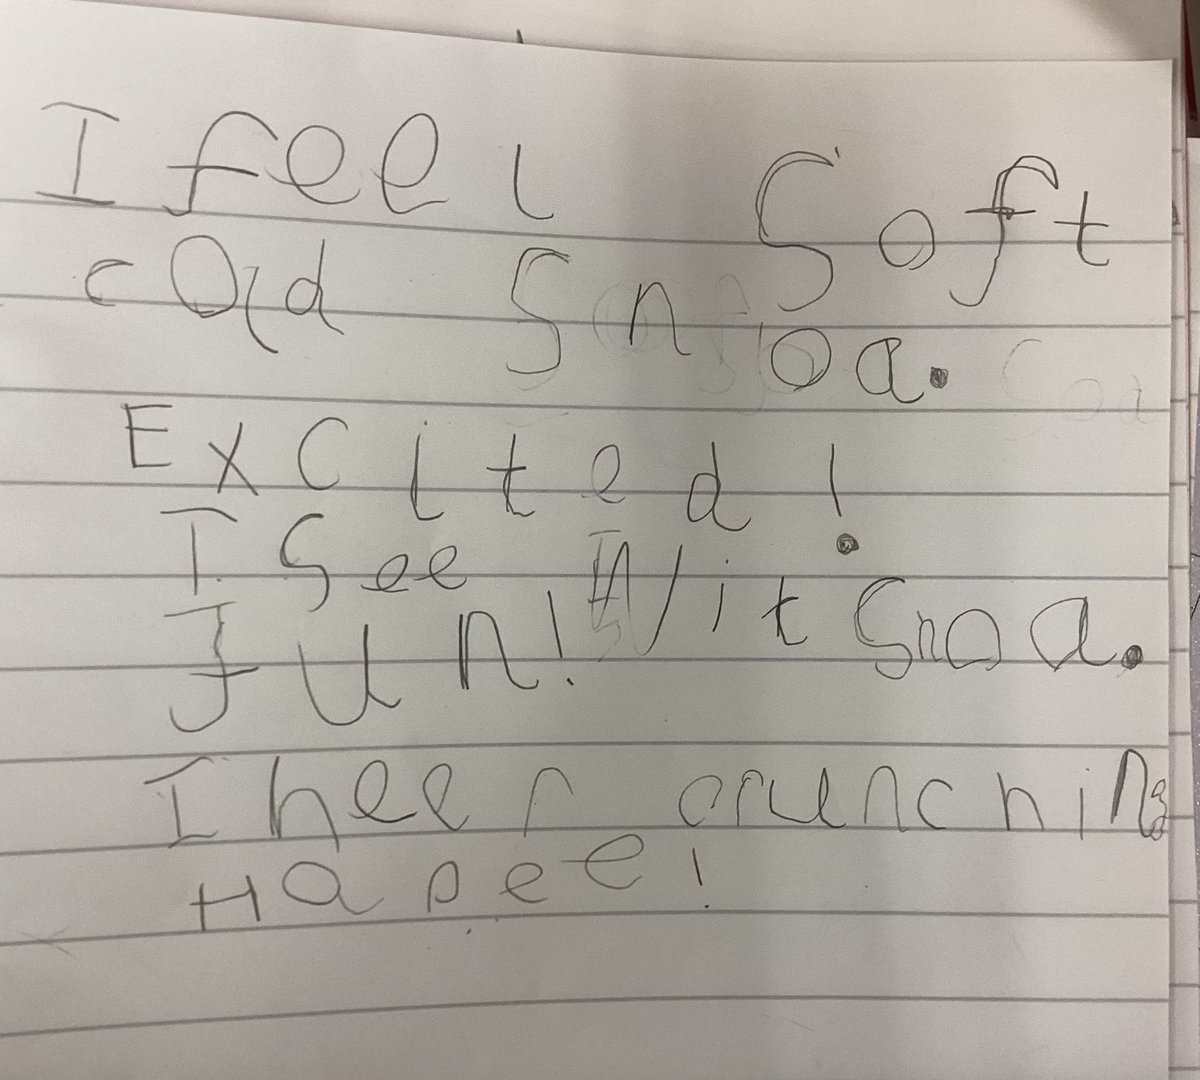 I feel Soft
cold Snoa.
Excited!
I See Wit Snoa.
Fun!
I heer crunching
Hapee!